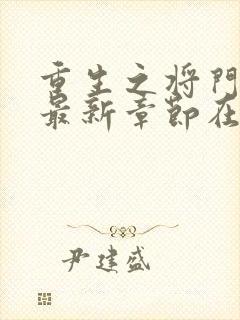 重生之将门
最新章节在
尹建盛